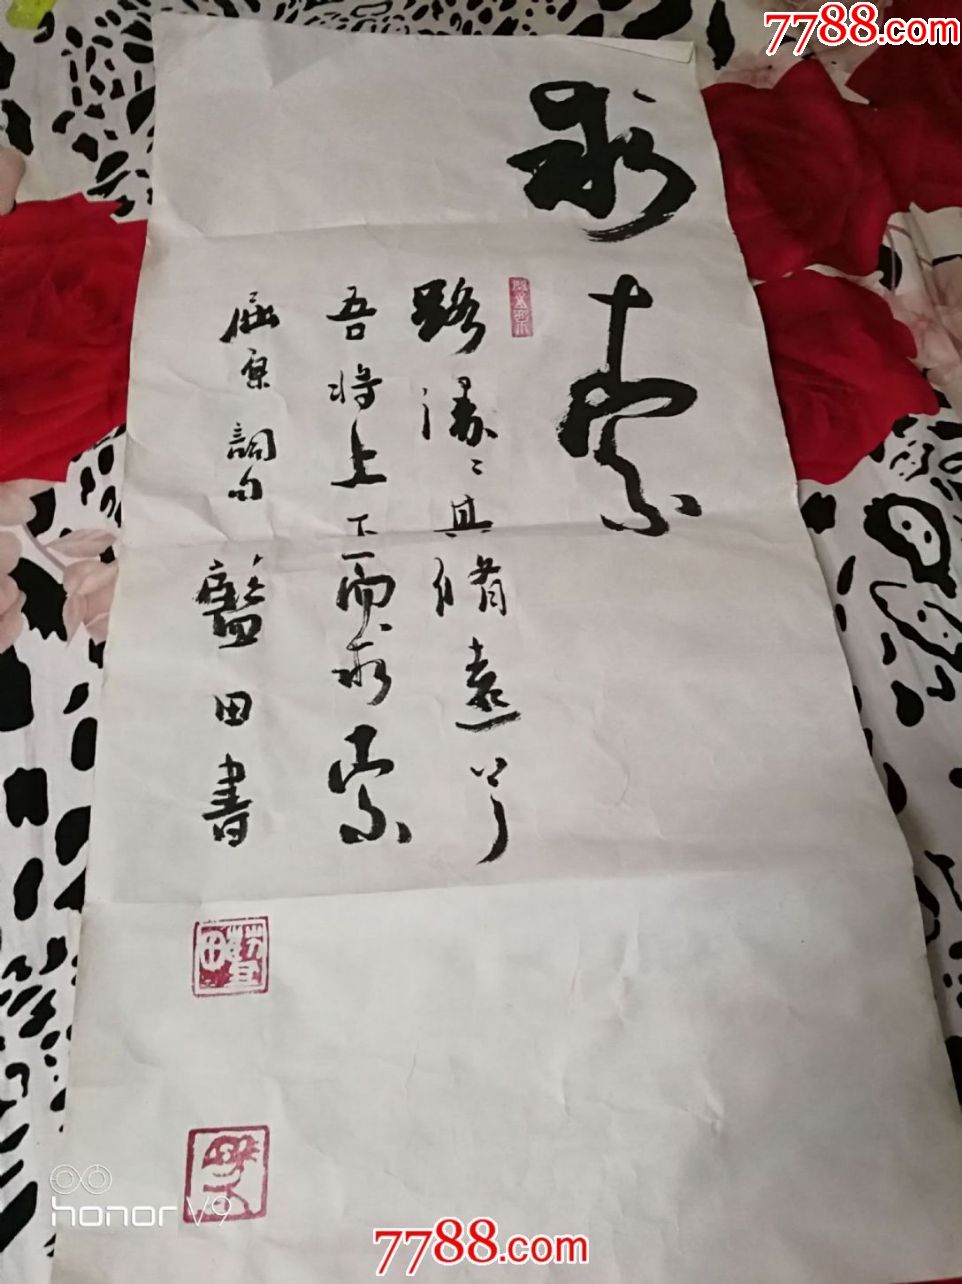 7788.com
求索
路漫〻其修遠兮
吾将上下而求索
屈原詞句 藍田書
honor V9
7788.com